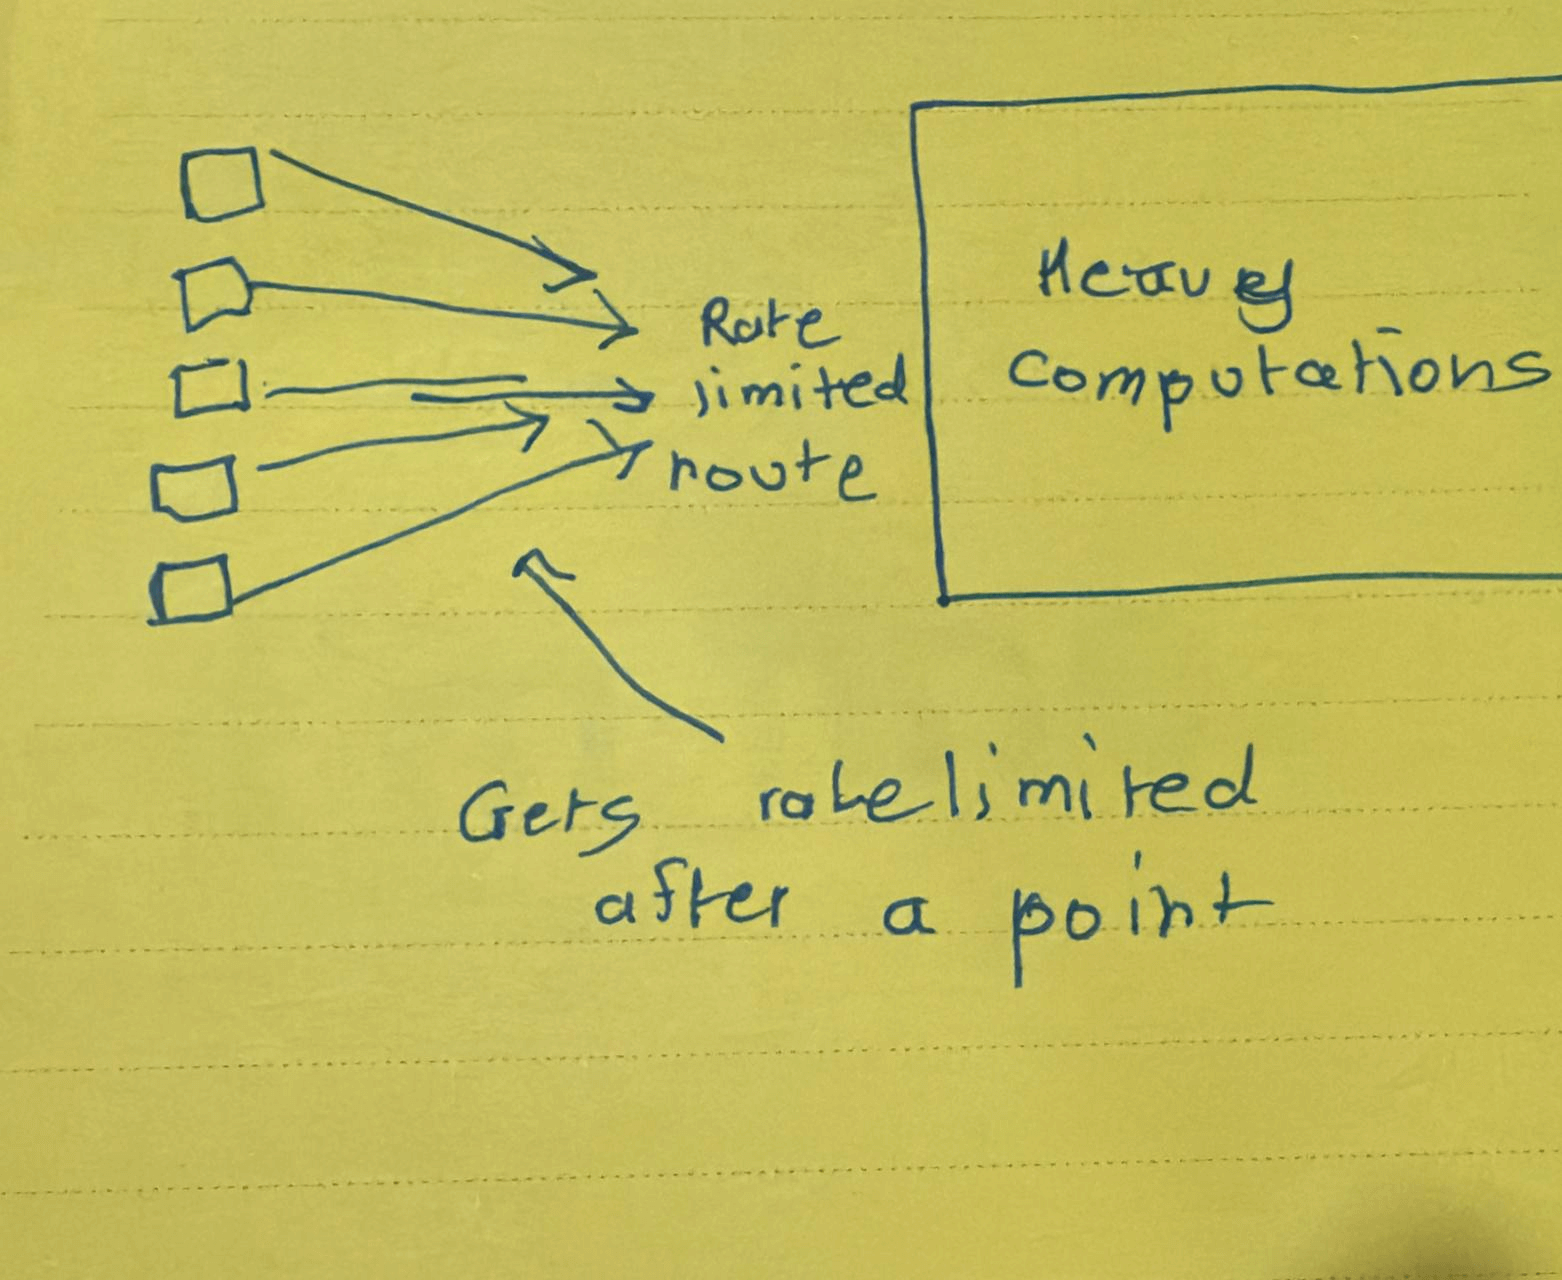 Rate
limited
route
Heavy
Computations
Gets ratelimited
after a point